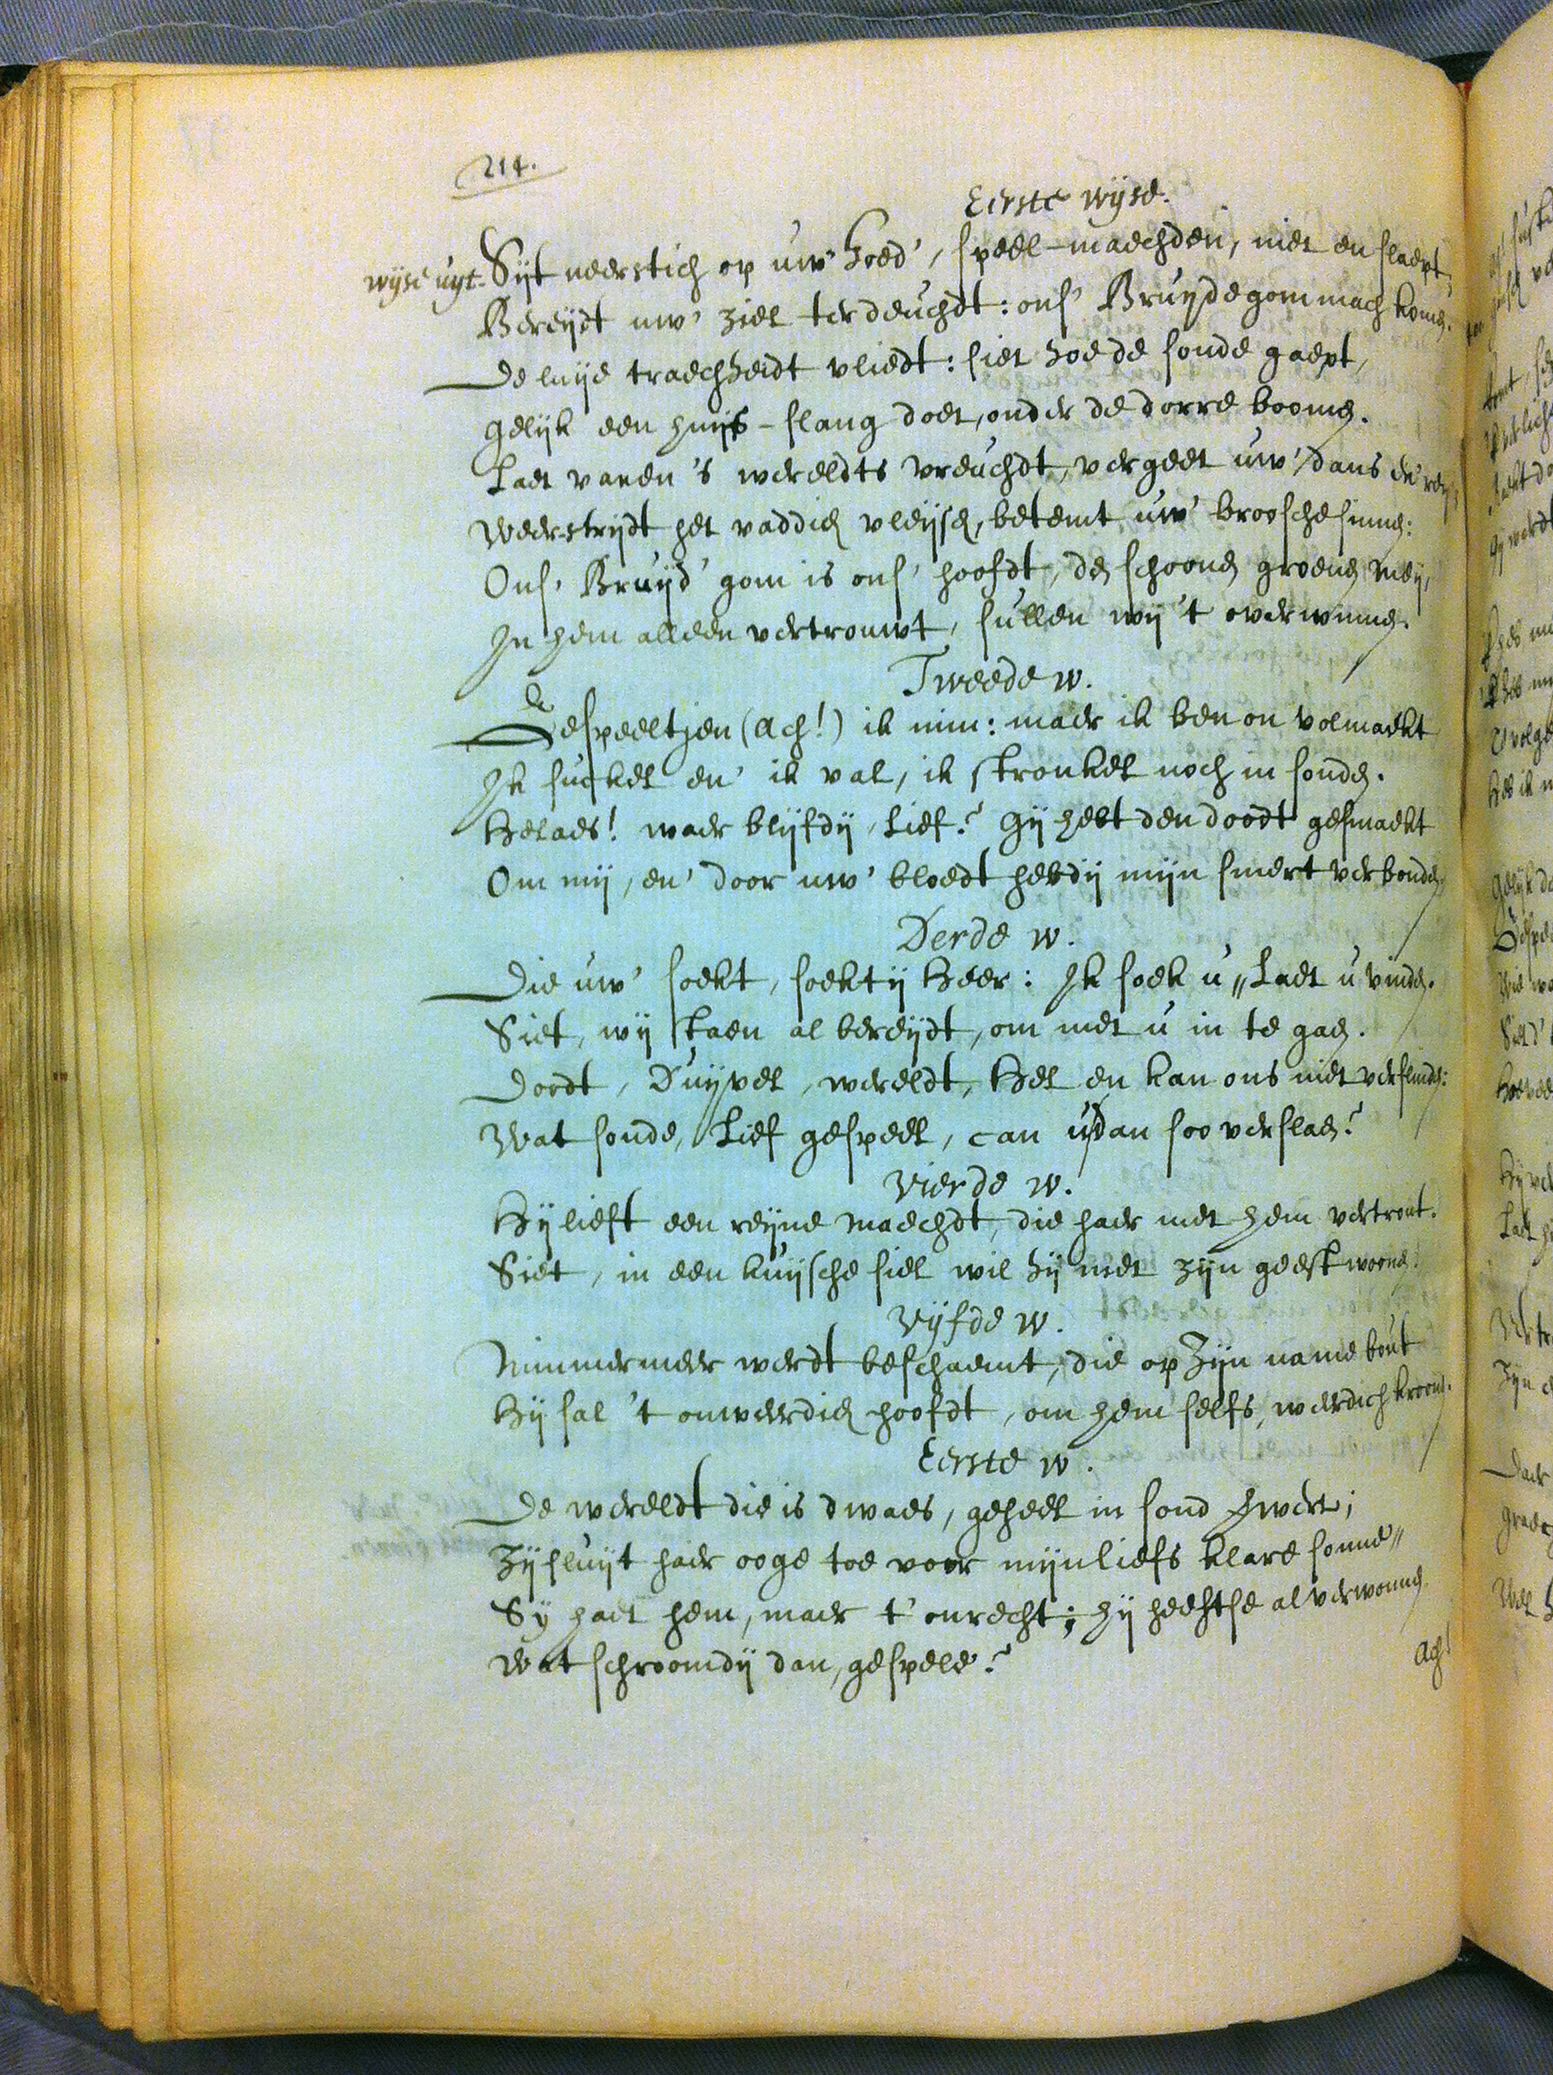 214.
Eerste wijse.
wijse uyt. Sijt neerstich op uw' hoed', speel-maechden, niet en slaept,
Bereijdt uw' ziel ter deuchdt: ons' Bruijdegom mach komen.
De luije traechheidt vliedt: siet hoe de sonde gaept,
Gelijk een huijs-slang doet, onder de dorre boomen.
Laet varen 's werelдts vreuchdt, vergeet uw' dans en' rey,
Weerstrijdt het vaddich vleijsch, betemt uw' broosche sinnen:
Ons' Bruijd'gom is ons' hoofdt, den schoonen groenen Meij,
In hem alleen vertrouwt, sullen wij 't overwinnen.
Tweede w.
Gespeeltjen (Ach!) ik min: maer ik ben onvolmaekt
Ik suckel en' ik val, ik stronkel noch in sonden.
Helaes! waer blijfdij, Lief? Gij hebt den doodt gesmaekt
Om mij, en' door uw' bloedt hebdij mijn smert verbonden,
Derde w.
Die uw' soekt, soektij Heer: Ik soek u, Laet u vinden.
Siet, wij staen al bereijdt, om met u in te gaen.
Doodt, Duijvel, wereldt, Hel en kan ons niet verslinden:
Wat sonde, Lief gespeel, can u dan soo verslaen?
Vierde w.
Hij lieft een reijne maechdt, die haer met hem vertrout.
Siet, in een kuijsche siel wil hij met zijn geest woonen.
Vijfde w.
Nimmermeer werdt beschaemt, die op Zijn name bout
Hij sal 't onweerdich hoofdt, om hem selfs, weerdich kroonen.
Eerste w.
De wereldt die is dwaes, geheel in sond
Zij sluijt haer ooge toe voor mijn liefs klare sonne
Sy haet hem, maer t'onrecht; hij heeftse al verwonnen
Wat schroomdij dan, gespele?
Ach!